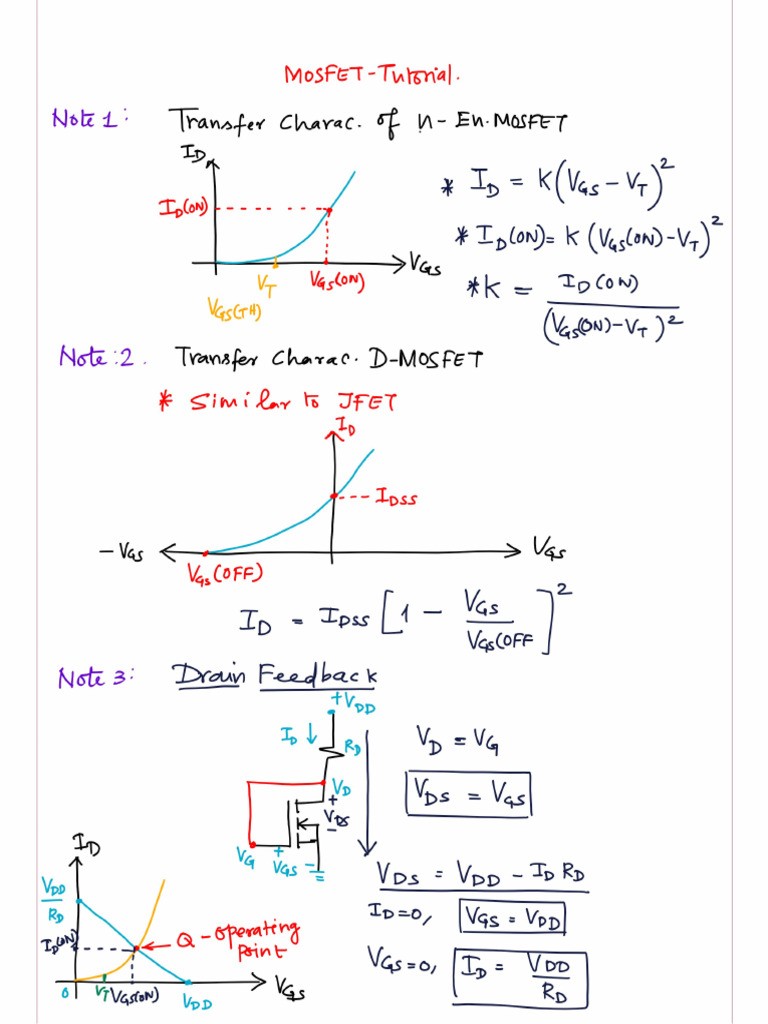 MOSFET-Tutorial.
Note 1: Transfer Charac. of n-En.MOSFET
I_D
I_D(ON)
V_T
V_GS(TH)
V_GS(ON)
V_GS
* I_D = K(V_GS - V_T)^2
* I_D(ON) = K (V_GS(ON)-V_T)^2
* K = I_D(ON) / (V_GS(ON)-V_T)^2
Note:2. Transfer Charac. D-MOSFET
* Similar to JFET
I_D
I_DSS
-V_GS
V_GS
V_GS(OFF)
I_D = I_DSS [1 - V_GS / V_GS(OFF]^2
Note 3: Drain Feedback
+V_DD
I_D ↓
R_D
V_D
+
V_DS
-
V_G
+
V_GS -
V_D = V_G
V_DS = V_GS
V_DS = V_DD - I_D R_D
I_D=0, V_GS = V_DD
V_GS=0, I_D = V_DD / R_D
I_D
V_DD / R_D
I_D(ON)
Q - operating
point
0
V_T
V_GS(ON)
V_DD
V_GS